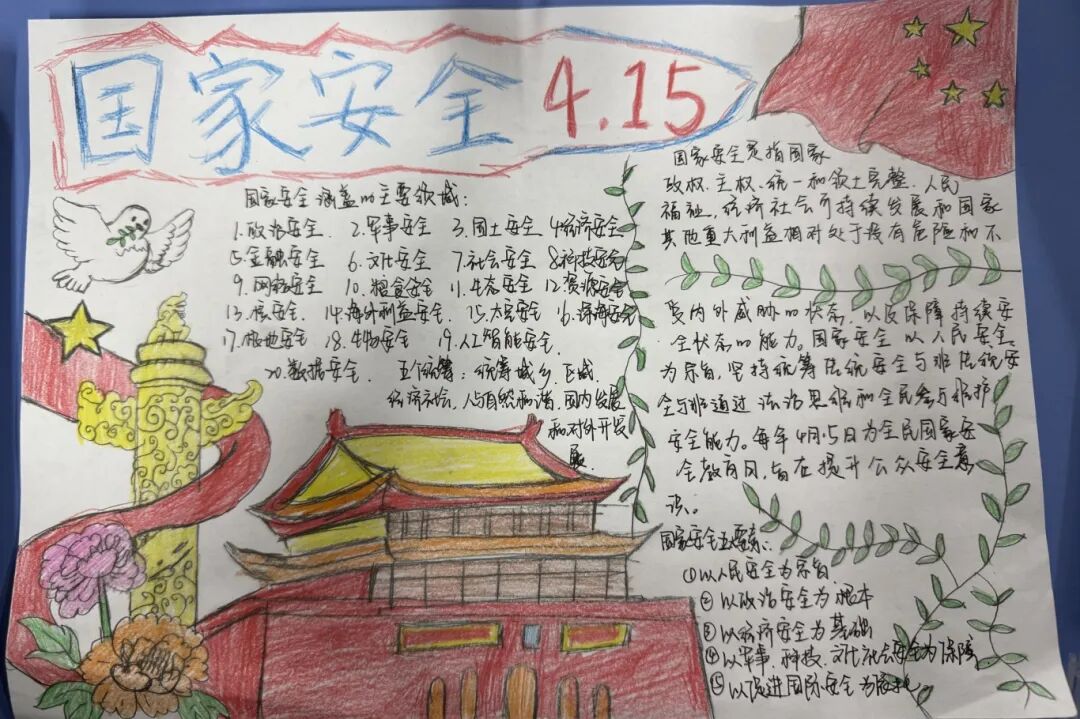 国家安全 4.15
国家安全涵盖的主要领域：
1.政治安全. 2.军事安全 3.国土安全 4.经济安全
5.金融安全 6.文化安全 7.社会安全 8.科技安全
9.网络安全 10.粮食安全 11.生态安全 12.资源安全
13.核安全. 14.海外利益安全. 15.太空安全 16.深海安全
17.极地安全 18.生物安全 19.人工智能安全.
20.数据安全. 五个统筹：统筹城乡、区域、
经济社会，人与自然和谐，国内发展
和对外开发
展.
国家安全是指国家
政权、主权、统一和领土完整、人民
福祉、经济社会可持续发展和国家
其他重大利益相对处于没有危险和不
受内外威胁的状态，以及保障持续安
全状态的能力。国家安全以人民安全
为宗旨，坚持统筹传统安全与非传统安
全与非通过法治思维和全民参与维护
安全能力。每年4月15日为全民国家安
全教育日，旨在提升公众安全意
识。
国家安全五要素：
①以人民安全为宗旨
②以政治安全为根本
③以经济安全为基础
④以军事、科技、文化社会安全为保障
⑤以促进国际安全为依托